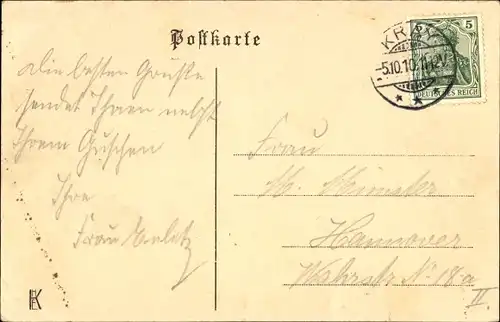 Postkarte
KRAY
5.10.10.11-12V.
5
DEUTSCHES REICH
Die besten Grüße
sendet Ihnen nebst
Ihrem Guschen
Ihre
Frau
Frau
M. Münster
Hannover
Str. N. 18a
II.